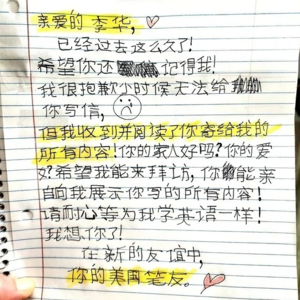 亲爱的 李华,
已经过去这么久了!
希望你还记得我!
我很抱歉少时候无法给
你写信,
但我收到并阅读了你寄给我的
所有内容!你的家人好吗?你的爱
好?希望我能来拜访,你能亲
自向我展示你写的所有内容!
请耐心等为我学英语一样!
我想你了!
在新的友谊中,
你的美国笔友。